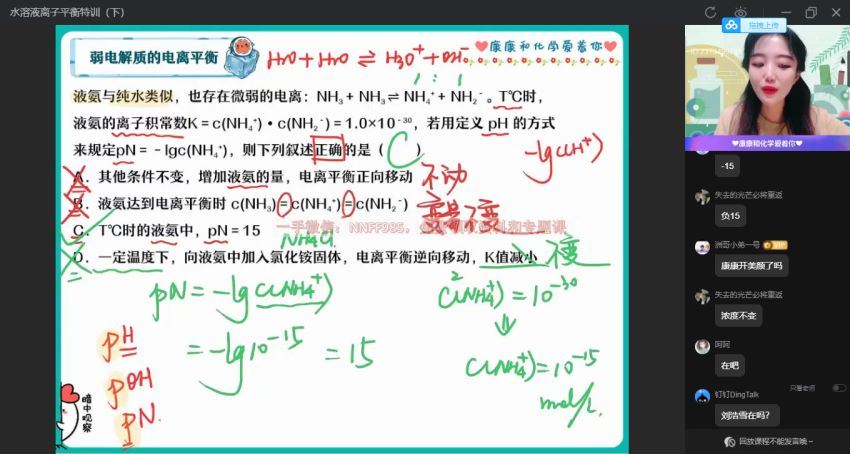 水溶液离子平衡特训（下）
拖拽上传
弱电解质的电离平衡
H₂O + H₂O ⇌ H₃O⁺ + OH⁻
康康和化学爱着你
1 : 1
液氨与纯水类似，也存在微弱的电离：NH₃ + NH₃ ⇌ NH₄⁺ + NH₂⁻。T℃时，
液氨的离子积常数K = c(NH₄⁺)•c(NH₂⁻) = 1.0×10⁻³⁰，若用定义 pH 的方式
来规定pN = - lgc(NH₄⁺)，则下列叙述正确的是（ C ）
-lgc(H⁺)
A．其他条件不变，增加液氨的量，电离平衡正向移动 不动
B．液氨达到电离平衡时 c(NH₃) = c(NH₄⁺) = c(NH₂⁻)
不变
C．T℃时的液氨中，pN = 15
一手微信：NNFF985，
NH₄Cl
D．一定温度下，向液氨中加入氯化铵固体，电离平衡逆向移动，K值减小 不变
pN = -lg c(NH₄⁺)
c²(NH₄⁺) = 10⁻³⁰
⇓
= -lg10⁻¹⁵ = 15
c(NH₄⁺) = 10⁻¹⁵
mol/L
pH
pOH
pN
暗中观察
康康和化学爱着你
-15
失去的光芒必将重返
负15
洲哥小弟一号
康康开美颜了吗
失去的光芒必将重返
浓度不变
阿阿
在吧
只看老师
钉钉DingTalk
刘浩雪在吗？
回放课程不能发言噢～